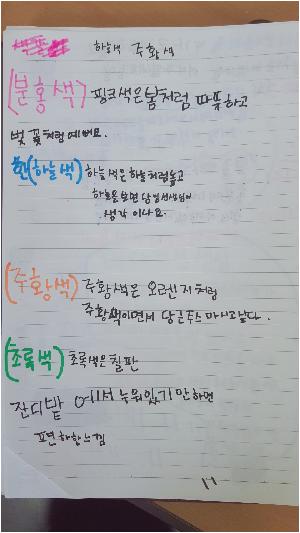 하늘색 주황색
(분홍색) 핑크색은 봄처럼 따뜻하고
벚꽃처럼 예뻐요.
(하늘색) 하늘색은 하늘처럼 높고
하늘을 보면 담임선생님이
생각이 나요.
(주황색) 주황색은 오렌지처럼
주황색이면서 당근주스 마시고 싶다.
(초록색) 초록색은 칠판
잔디밭 에서 누워있기만 하면
편한 느낌